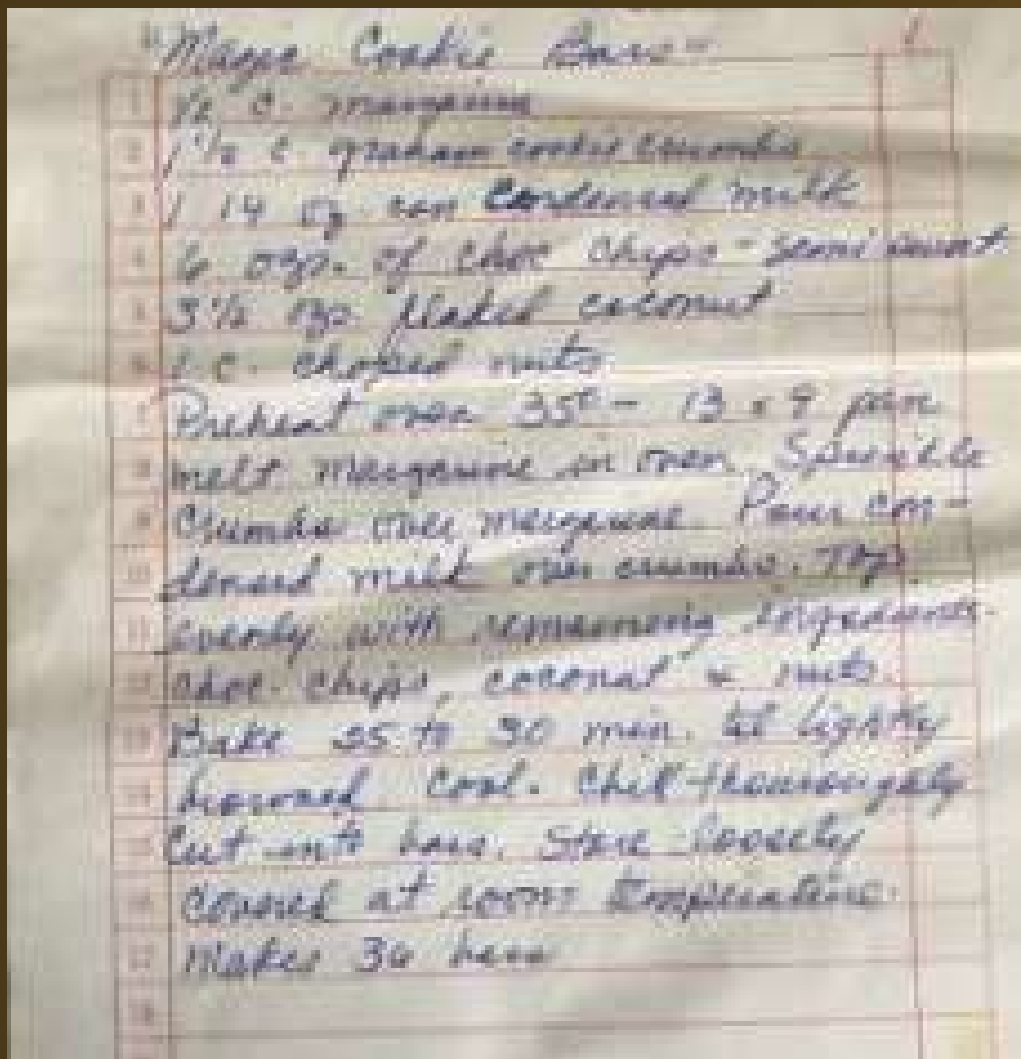 "Magic Cookie Bars"
1
1 ½ c. margarine
2 1 ½ c graham cookie crumbs
3 1 14 oz can Condensed milk
4 6 ozs. of choc chips - semi sweet
5 3 ½ ozs flaked coconut
6 1 c. choped nuts
7 Preheat oven 350 - 13 x 9 pan
8 melt margarine in oven. Sprinkle
9 Crumbs over margarine. Pour con-
10 densed milk over crumbs. Top
11 evenly with remaining ingredients.
12 choc. chips, coconut & nuts.
13 Bake 25 to 30 min. til lightly
14 browned Cool. Chill thouroughly
15 Cut into bars. Store loosely
16 covered at room temperature.
17 Makes 36 bars
18